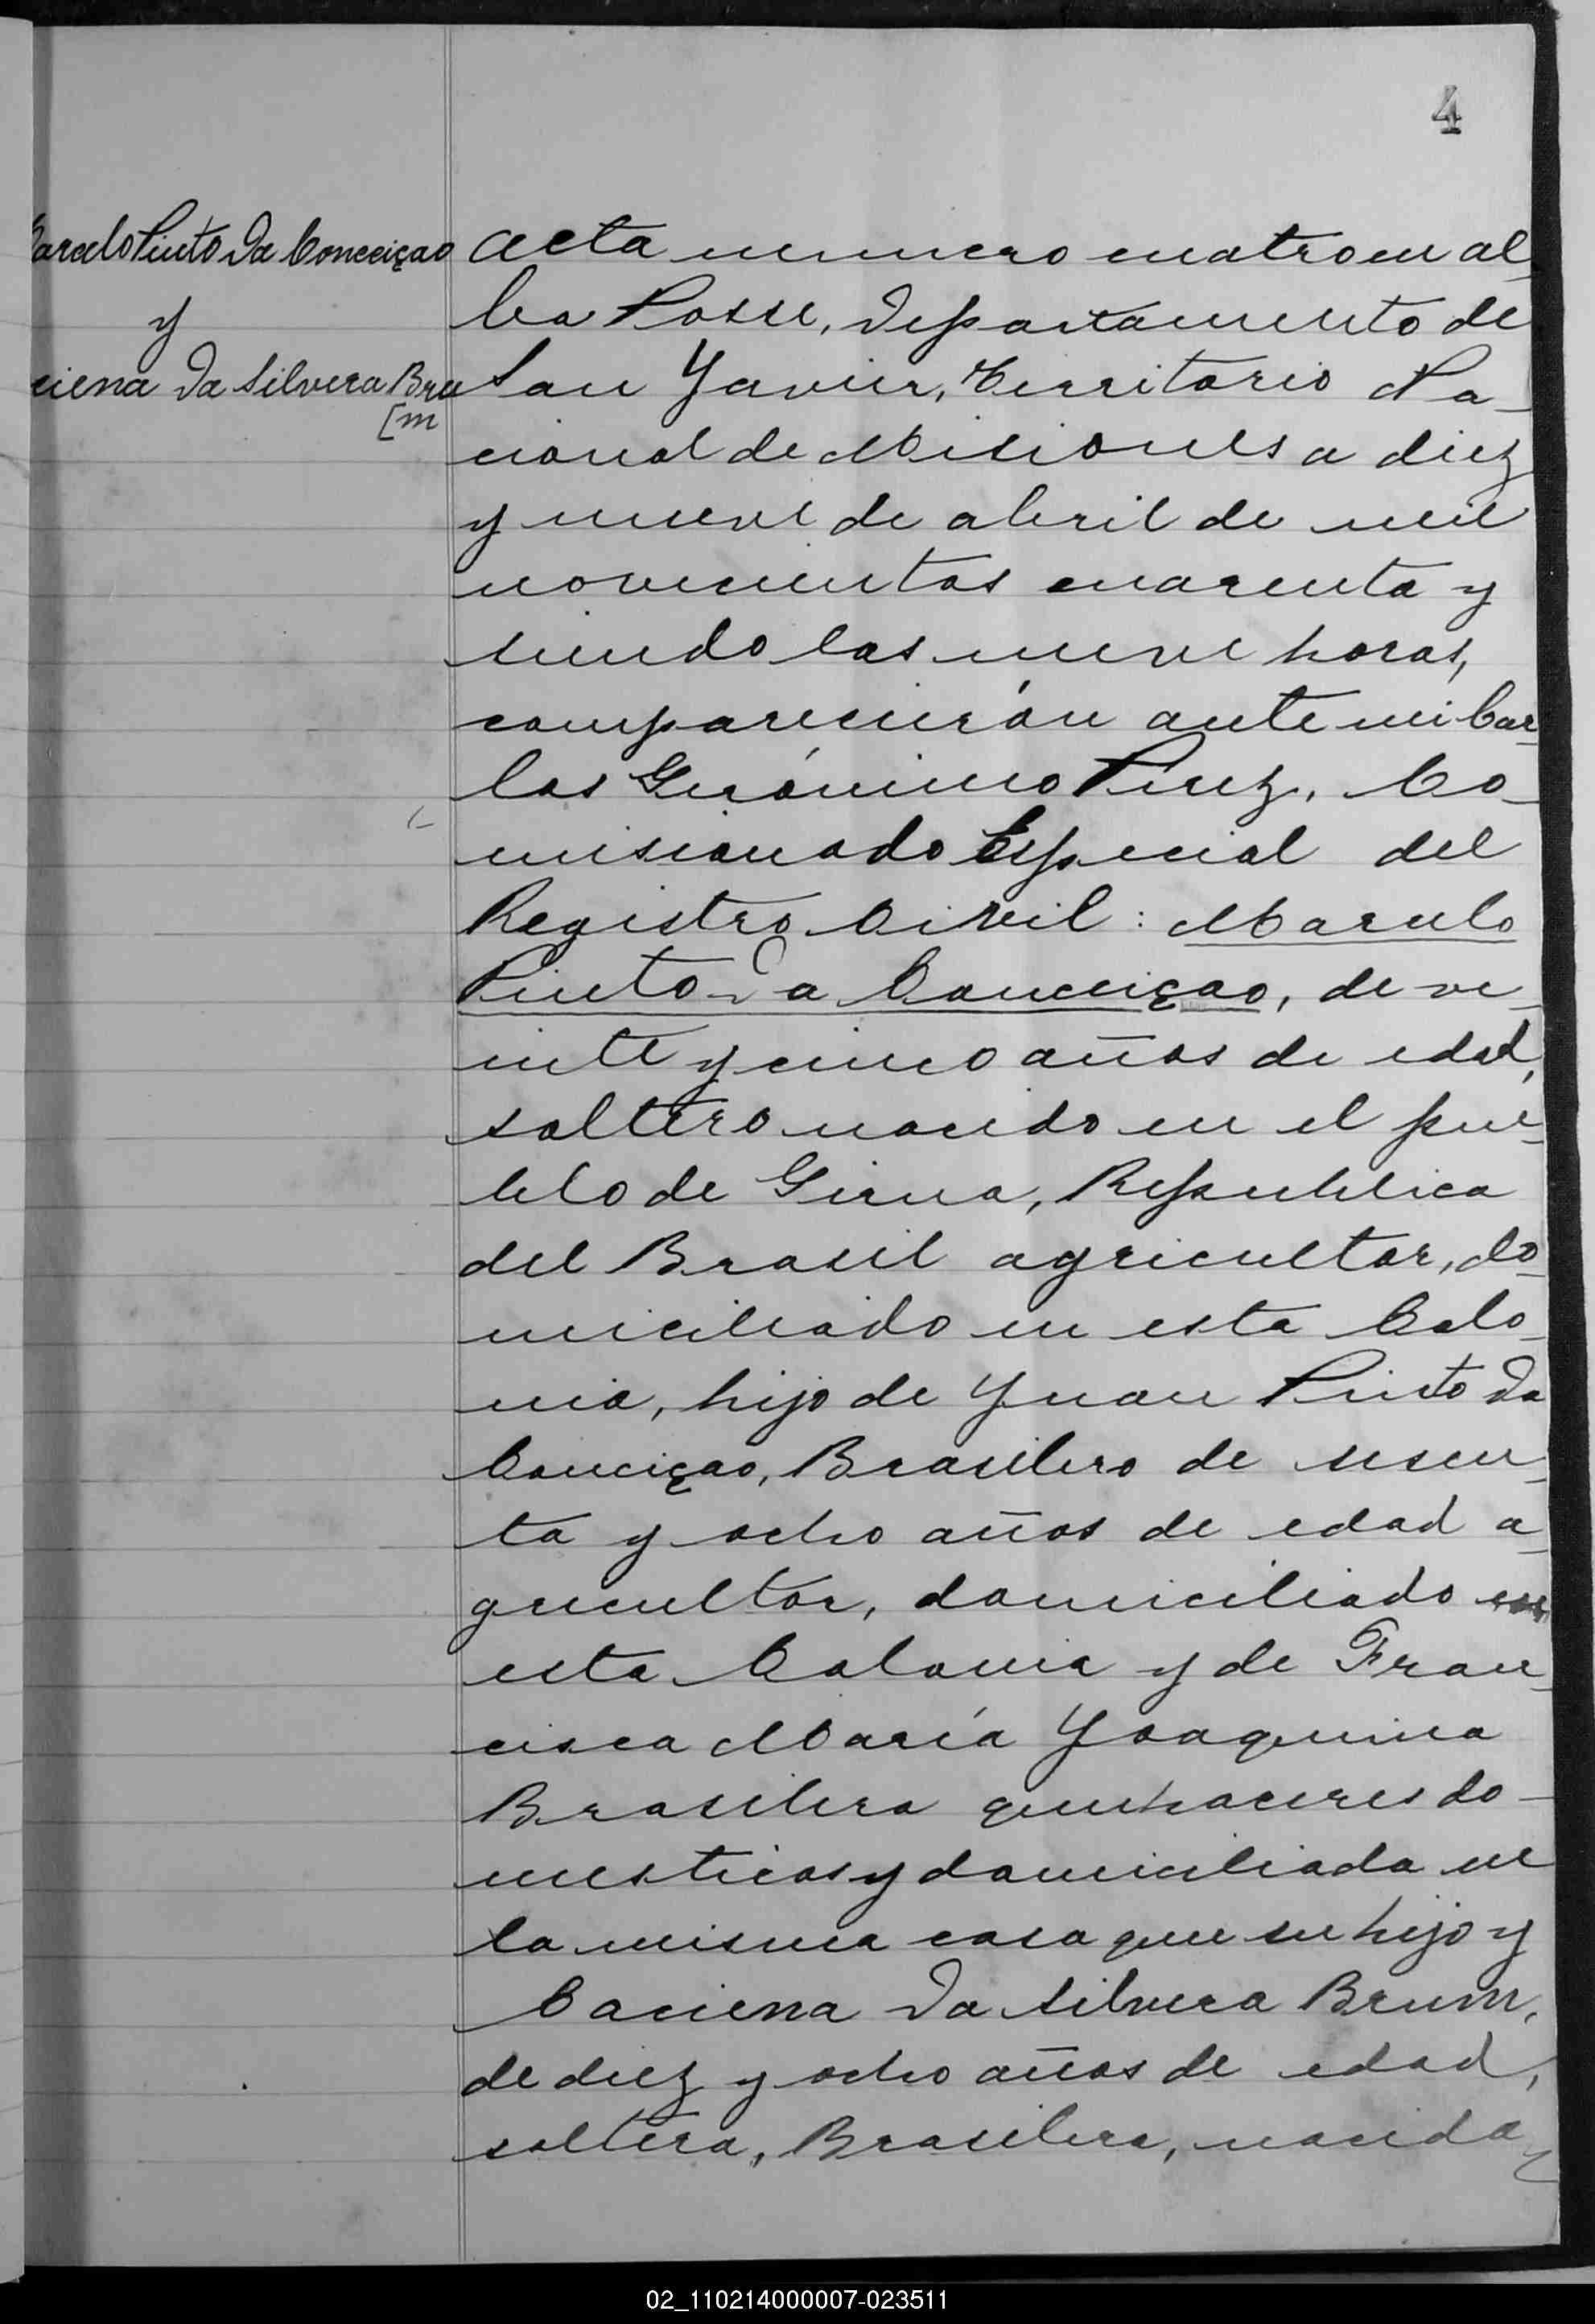 4
arcelo Pinto Da Conceiçao
y
ciena Da Silvera Bru
[m
Acta numero cuatro en Al-
ba Posse, Departamento de
San Javier, Territorio Na-
cional de Misiones a diez
y nueve de abril de mil
novecientos cuarenta y
siendo las nueve horas,
comparecierón ante mi Car-
los Gerónimo Perez, Co-
misionado Especial del
Registro Civil: Marcelo
Pinto Da Conceiçao, de ve-
inte y cinco años de edad,
soltero nacido en el pue-
blo de Girua, Republica
del Brasil agricultor, do-
miciliado en esta Colo-
nia, hijo de Juan Pinto Da
Conciçao, Brasilero de sesen-
ta y ocho años de edad a-
gricultor, domiciliado en
esta Colonia y de Fran-
cisca María Joaquina
Brasilera quehaceres do-
mesticos y domiciliada en
la misma casa que su hijo y
Caciena Da Silvera Brum,
de diez y ocho años de edad,
soltera, Brasilera, nacida
02_110214000007-023511